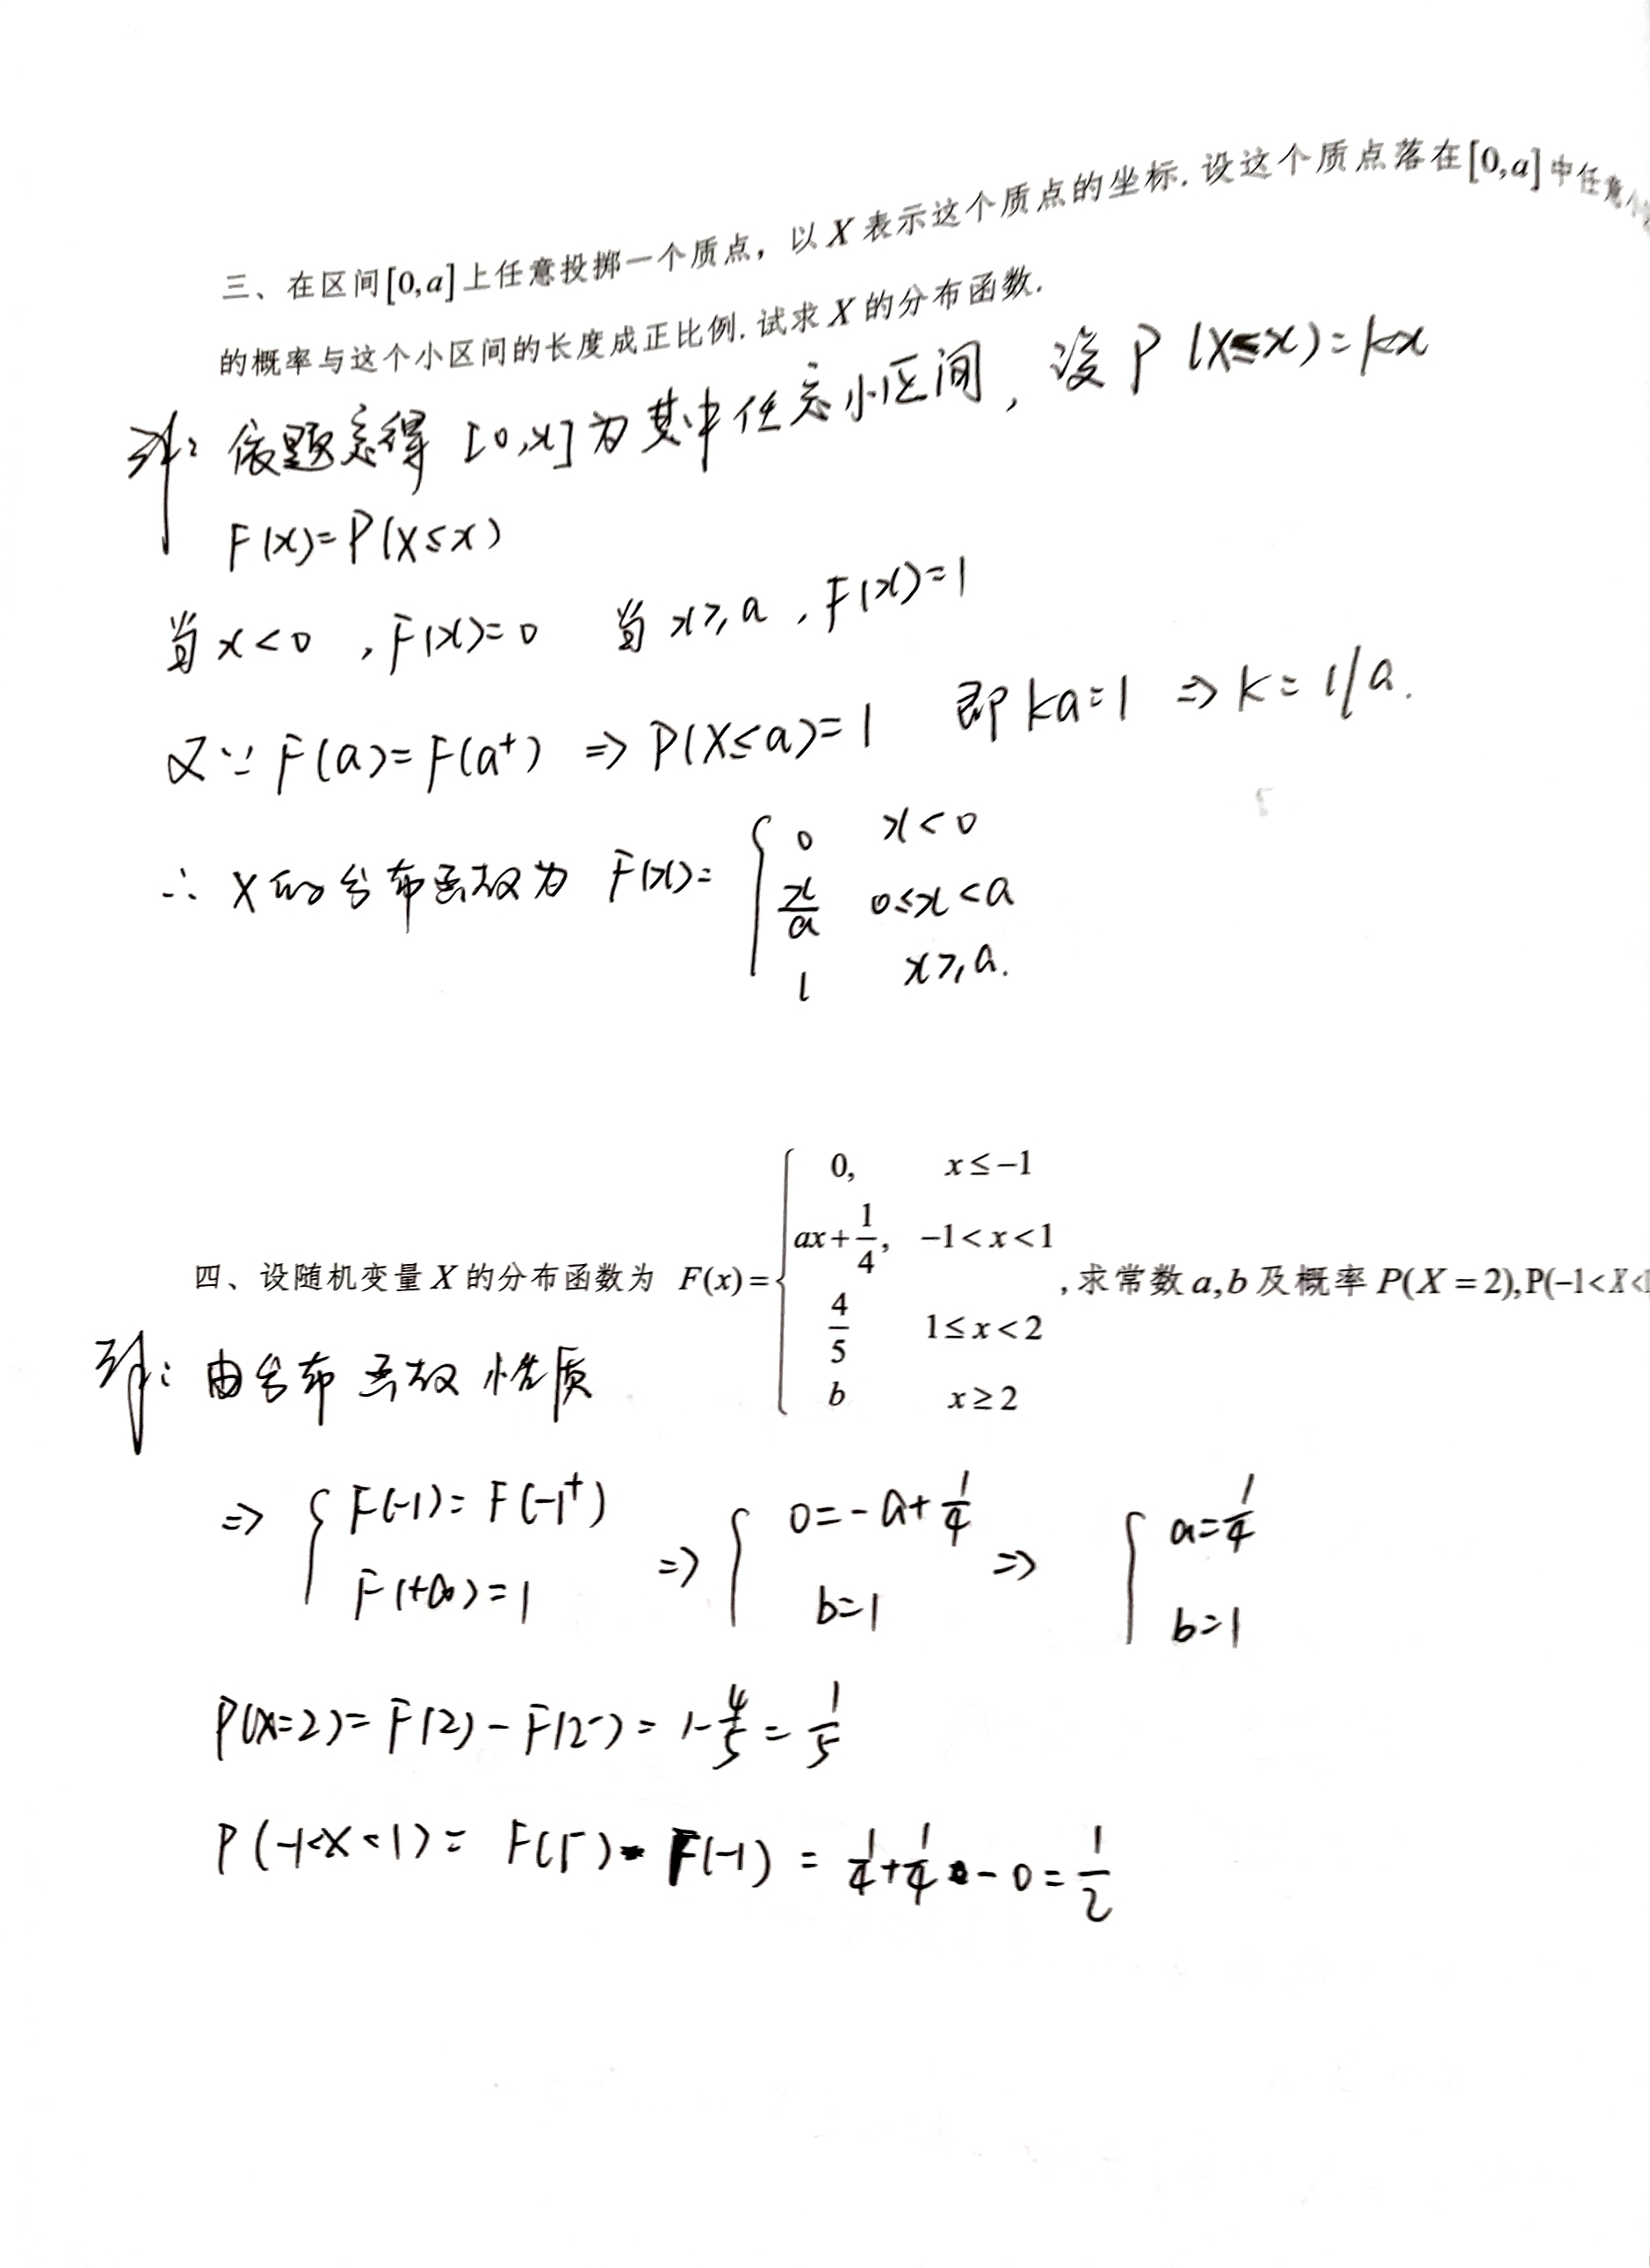 三、在区间[0,a]上任意投掷一个质点，以X表示这个质点的坐标.设这个质点落在[0,a]中任意小
的概率与这个小区间的长度成正比例.试求X的分布函数.
解：依题意得 [0,x]为其中任意小区间，设 P(X≤x)=kx
F(x)=P(X≤x)
当x<0，F(x)=0 当x≥a，F(x)=1
又∵F(a)=F(a⁺) ⇒ P(X≤a)=1 即ka=1 ⇒ k=1/a.
∴ X的分布函数为 F(x)= { 0 x<0
x/a 0≤x<a
1 x≥a.
四、设随机变量X的分布函数为 F(x)= { 0, x≤-1
ax+1/4, -1<x<1
4/5 1≤x<2
b x≥2
,求常数a,b及概率P(X=2),P(-1<X<1
解：由分布函数性质
⇒ { F(-1)=F(-1⁺) F(+∞)=1 ⇒ { 0=-a+1/4 b=1 ⇒ { a=1/4 b=1
P(X=2)=F(2)-F(2⁻)=1-4/5=1/5
P(-1<X<1)=F(1⁻)-F(-1)=1/4+1/4-0=1/2